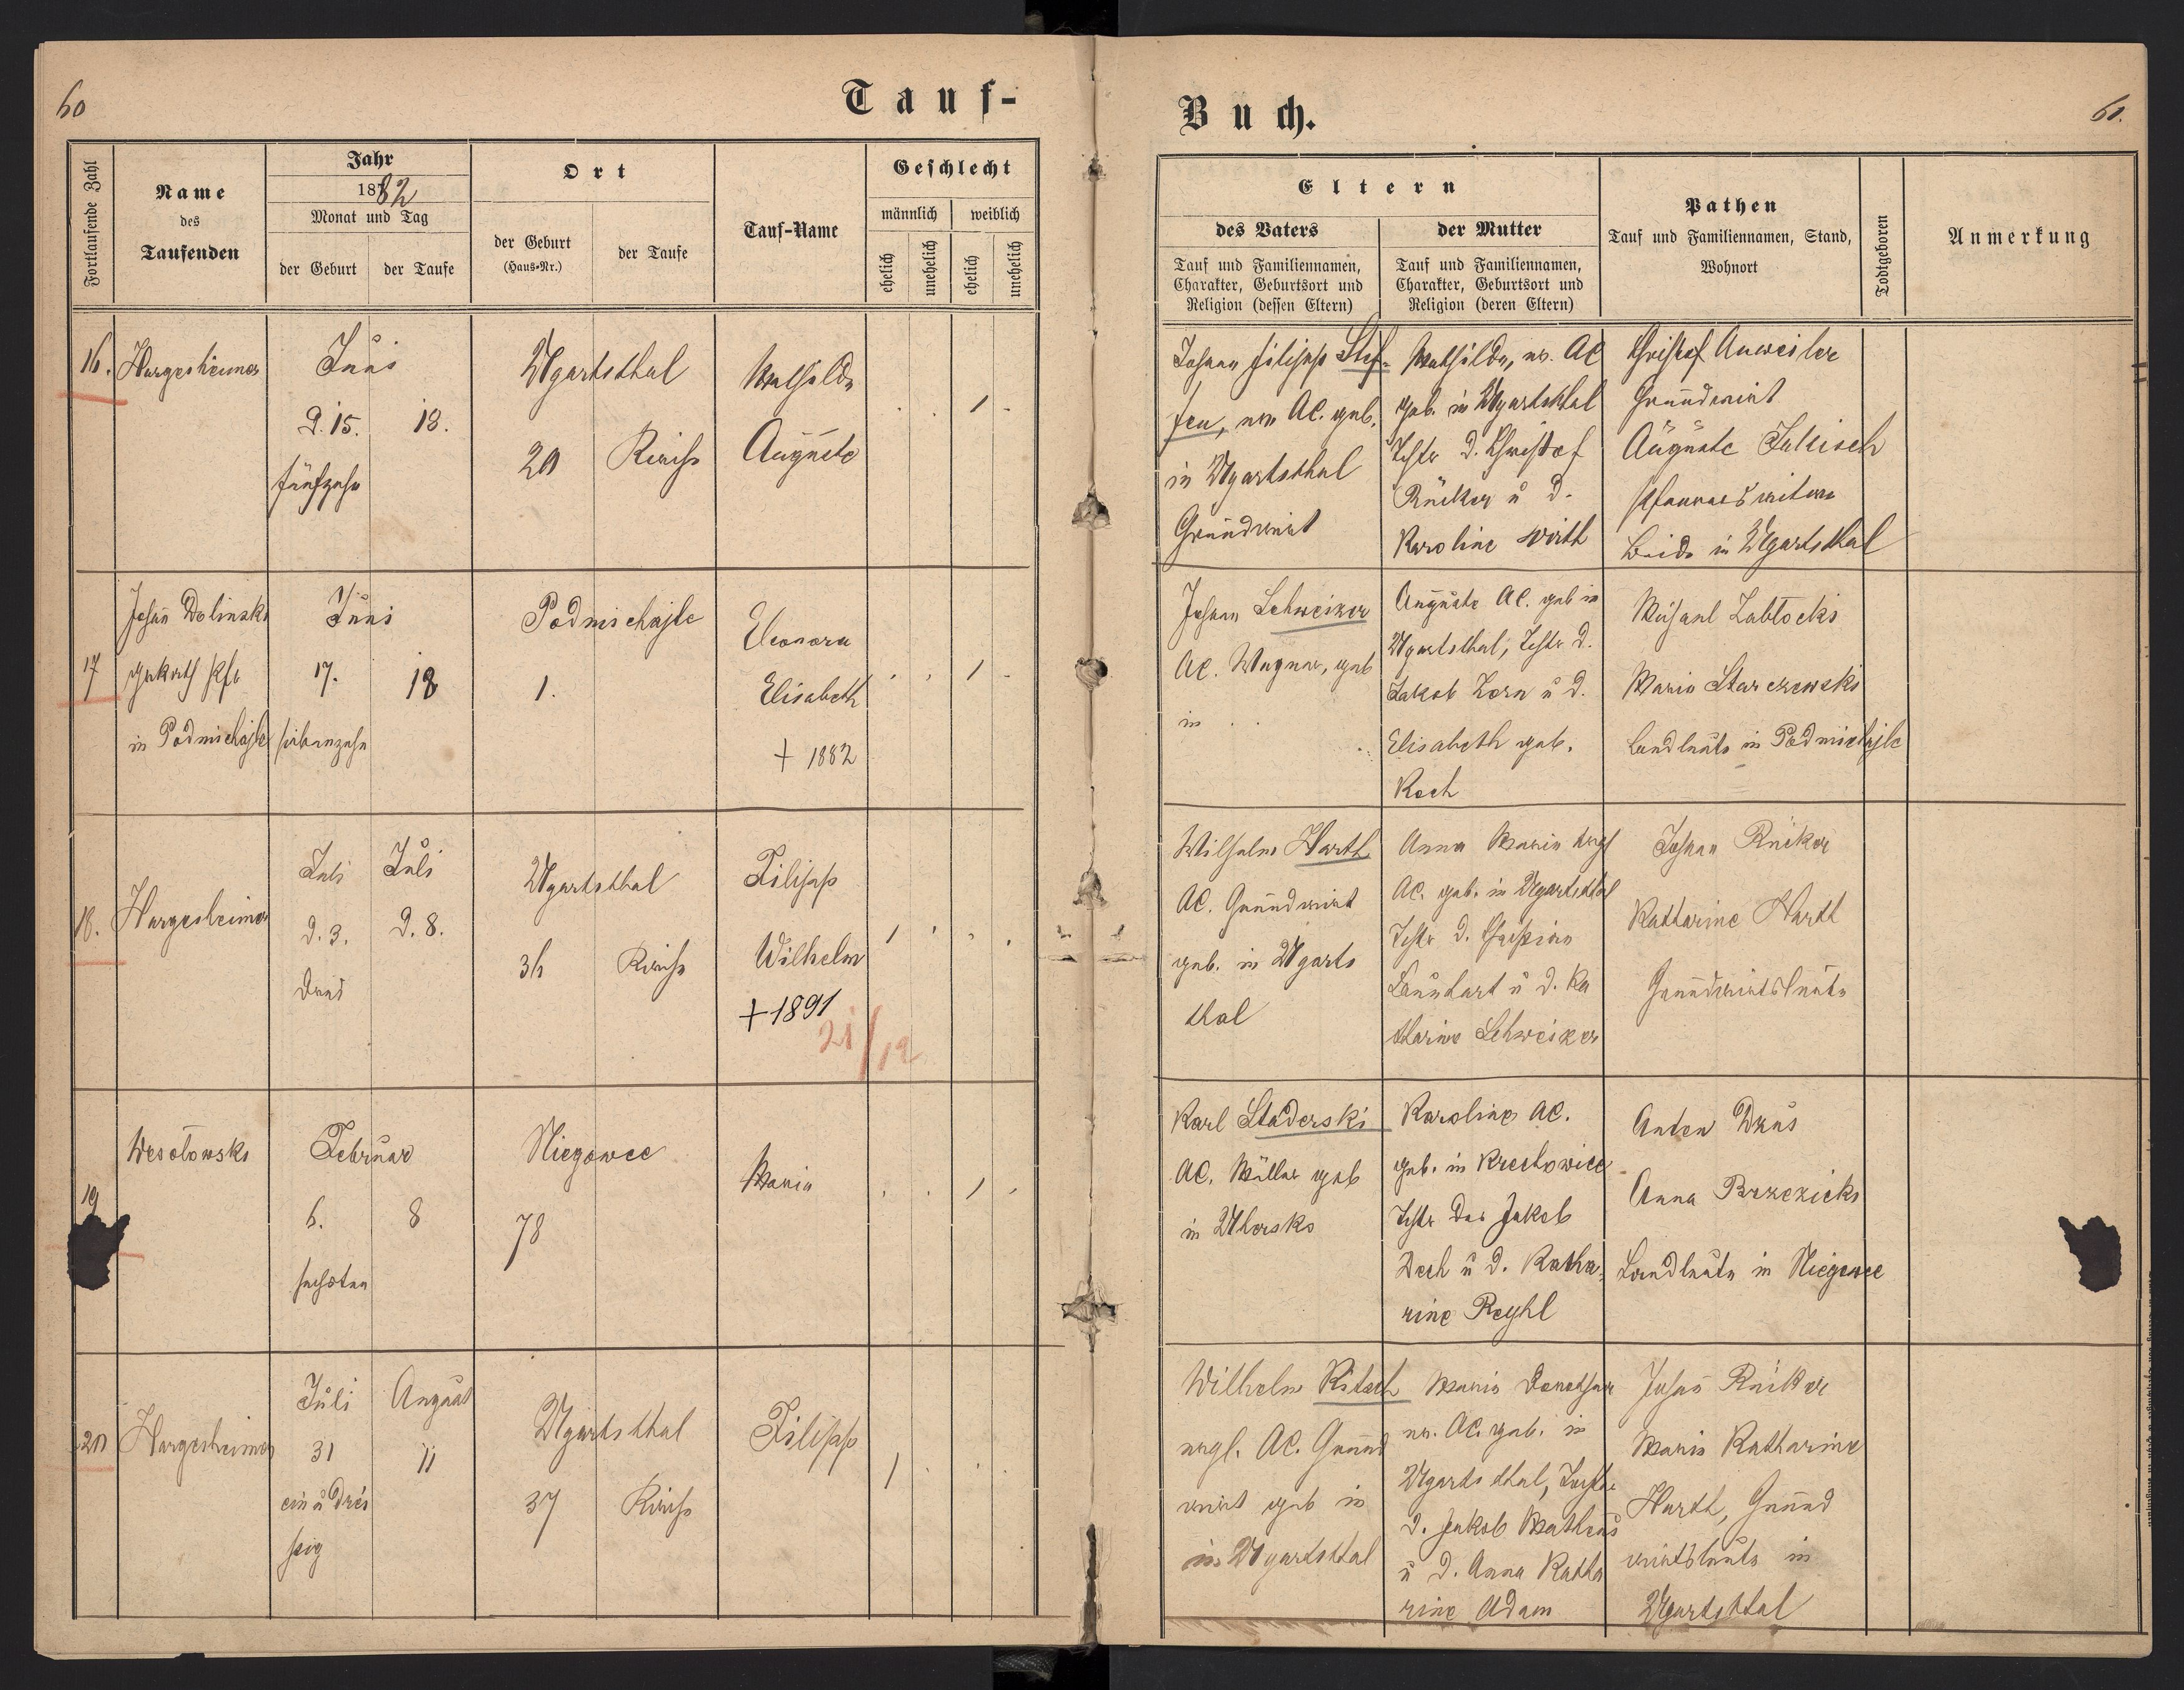 60
Tauf-
Fortlaufende Zahl
Name
des
Taufenden
Jahr
1882
Monat und Tag
der Geburt
der Taufe
Ort
der Geburt
(Haus-Nr.)
der Taufe
Tauf-Name
Geschlecht
männlich
weiblich
ehelich
unehelich
ehelich
unehelich
16.
Hargesheimer
Juni
d. 15.
18.
fünfzehn
Ugartsthal
20
Kirche
Mathilde
Auguste
17
Johan Dolinski
in Podmichajle
Juni
17.
18
siebenzehn
Podmichajle
1.
Eleonora
Elisabeth
+ 1882
18.
Hargesheimer
Juli
Juli
d. 3.
d. 8.
drei
Ugartsthal
36
Kirche
Filipp
Wilhelm
+ 1891
21/12
19
Wesołowski
Februar
6.
8
sechsten
Niegowce
78
Maria
20
Hargesheimer
Juli
August
31
11
ein u drei
ßig
Ugartsthal
37
Kirche
Filipp
Buch.
61.
Eltern
des Vaters
Tauf und Familiennamen,
Charakter, Geburtsort und
Religion (dessen Eltern)
der Mutter
Tauf und Familiennamen,
Charakter, Geburtsort und
Religion (deren Eltern)
Pathen
Tauf und Familiennamen, Stand,
Wohnort
Todtgeboren
Anmerkung
Johann Filipp Stef-
fen, ev. AC. geb.
in Ugartsthal
Grundwirt
Mathilde, ev. AC
geb. in Ugartsthal
Tochter d. Christof
Rücker u d.
Karoline Wirth
Christof Anweiler
Grundwirt
Auguste Jakisch
Beide in Ugartsthal
Johan Schweizer
AC. Wagner, geb
in
Auguste AC. geb in
Ugartsthal, Tochter d.
Jakob Zorn u d.
Elisabeth geb.
Koch
Michael Zabłocki
Maria Starczewski
Landleute in Podmichajle
Wilhelm Harth
AC. Grundwirt
geb. in Ugarts
thal
Anna Maria evgl
AC. geb. in Ugartsthal
Tochter d. Christian
d. Ka
tharine Schweizer
Johan Rücker
Katharine Harth
Grundwirtsleute
Karl Staderski
AC. Müller geb
in Uhersko
Karoline AC.
geb. in Krechowice
Tochter des Jakob
Dech u d. Katha-
rine Reyhl
Anton Drus
Anna Brzezicki
Landleute in Niegowce
Wilhelm Kitsch
evgl. AC. Grund
wirt geb in
in Ugartsthal
Maria Dorothea
ev. AC. geb. in
Ugartsthal, Tochter
d. Jakob Matheus
u d. Anna Katha
rine Adam
Johan Rücker
Maria Katharine
Harth, Grund
wirtsleute in
Ugartsthal